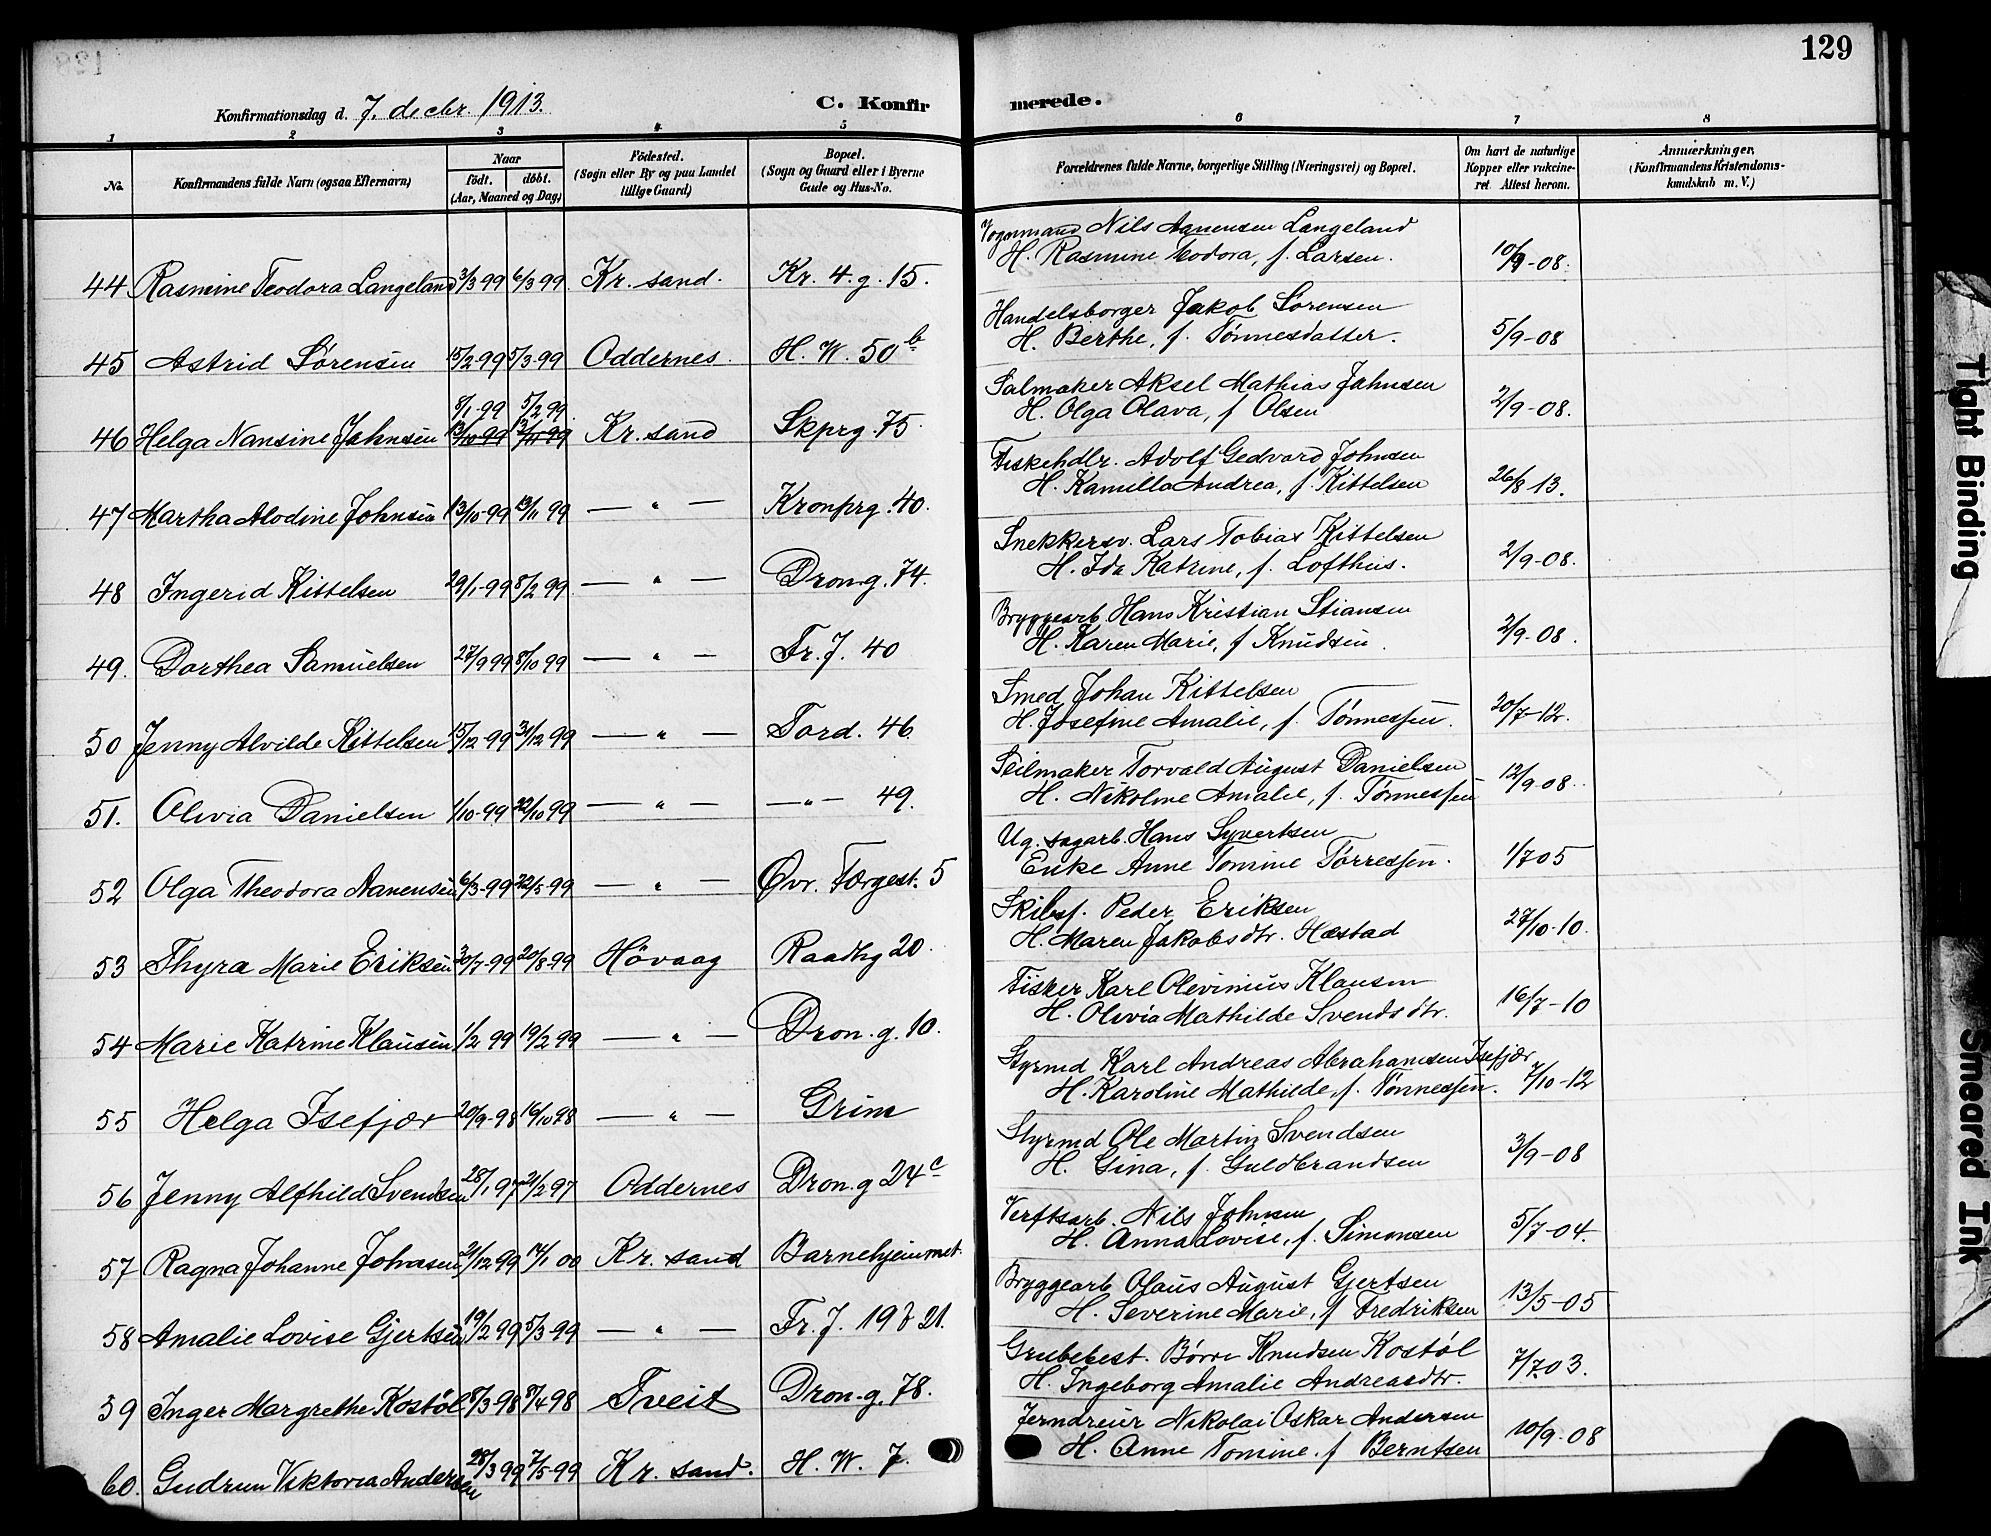 129
Konfirmationsdag d. 7. decbr. 1913. C. Konfirmerede.
1 2 3 4 5 6 7 8
No. Konfirmandens fulde Navn (ogsaa Efternavn) Naar født. døbt. (Aar, Maaned og Dag) Födested. (Sogn eller By og paa Landet tillige Gaard) Bopæl. (Sogn og Gaard eller i Byerne Gade og Hus-No. Forældrenes fulde Navne, borgerlige Stilling (Næringsvei) og Bopæl. Om havt de naturlige Kopper eller vaksineret. Attest herom. Anmærkninger. (Konfirmandens Kristendomskundskab m. V.)
Vognmand Nils Aanensen Langeland
44 Rasmine Teodora Langeland 3/3 99 6/3 99 Kr. sand. Kr. 4. g. 15. H. Rasmine Teodora, f. Larsen. 10/9-08.
Handelsborger Jakob Sørensen
45 Astrid Sørensen 15/2-99 5/3-99 Oddernes. H. W. 50 b H. Berthe, f. Tønnesdatter. 5/9-08
Salmaker Aksel Mathias Jahnsen
8/1-99 5/2 99
46 Helga Nansine Jahnsen 13/10-99 13/11-99 Kr. sand Skprg. 75 H. Olga Olava, f Olsen 2/9-08.
Fiskehdlr. Adolf Gedvard Johnsen
47 Martha Alodine Johnsen 13/10-99 13/11 99 — " — Kronprg. 40. H. Kamilla Andrea, f. Kittelsen 26/8 13.
Snekkersv. Lars Tobias Kittelsen
48 Ingerid Kittelsen 29/1-99 8/2 99 — " — Dron.g. 74. H. Ida Katrine, f. Lofthus. 2/9-08.
Bryggearb. Hans Kristian Stiansen
49. Dorthea Samuelsen 27/9 99 8/10 99 — " — Fr. J. 40 H. Karen Marie, f Knudsen. 2/9-08.
Smed Johan Kittelsen
50 Jenny Alvilde Kittelsen 15/12-99 31/12 99 — " — Tord. 46 H. Josefine Amalie, f. Tønnessen. 20/7-12.
Seilmaker Torvald August Danielsen
51. Olivia Danielsen 1/10-99 22/10 99 — " — — " — 49. H. Nikoline Amalie, f. Tønnessen 12/9-08.
Ug. sagarb. Hans Syvertsen
52 Olga Theodora Aanensen 6/3-99 22/5-99 — " — Øvr. Færgest. 5 Enke Anne Tomine Tørressen. 1/7 05
Skibsf. Peder Eriksen
53 Thyra Marie Eriksen 30/7-99 20/8-99 Høvaag Raadhg 20. H. Maren Jakobsdtr. Hæstad 27/10-10.
Fisker Karl Olevinius Klausen
54 Marie Katrine Klausen 1/2 99 19/2 99 — " — Dron.g. 10. H. Olivia Mathilde Svendsdtr. 16/7-10
Styrmd Karl Andreas Abrahamsen Isefjær
55 Helga Isefjær 20/9-98 16/10 98 — " — Grim H. Karoline Mathilde, f. Tønnessen. 7/10-12
Styrmd Ole Martin Svendsen
56 Jenny Alfhild Svendsen 28/1 97 21/2-97 Oddernes Dron.g 24 c H. Gina, f. Guldbrandsen 3/9-08
Verftsarb. Nils Johnsen
57 Ragna Johanne Johnsen 21/12 99 14/1 00 Kr. sand Barnehjemmet. H. Anna Lovise, f. Simonsen 5/7-04.
Bryggearb Olaus August Gjertsen
58 Amalie Lovise Gjertsen 19/2 99 5/3-99 — " — Fr. J. 19 & 21. H. Severine Marie, f Fredriksen 13/5-05
Grubebest. Børre Knudsen Kostøl
59 Inger Margrethe Kostøl 8/3-98 8/4-98 Tveit Dron.g. 78. H. Ingeborg Amalie Andreasdtr. 7/7 03.
Jerndreier Nikolai Oskar Andersen
60. Gudrun Viktoria Andersen 28/3 99 7/5-99 Kr. sand. H. W. 7. H. Anne Tomine, f Berntsen 10/9-08
Tight Binding
Smeared Ink